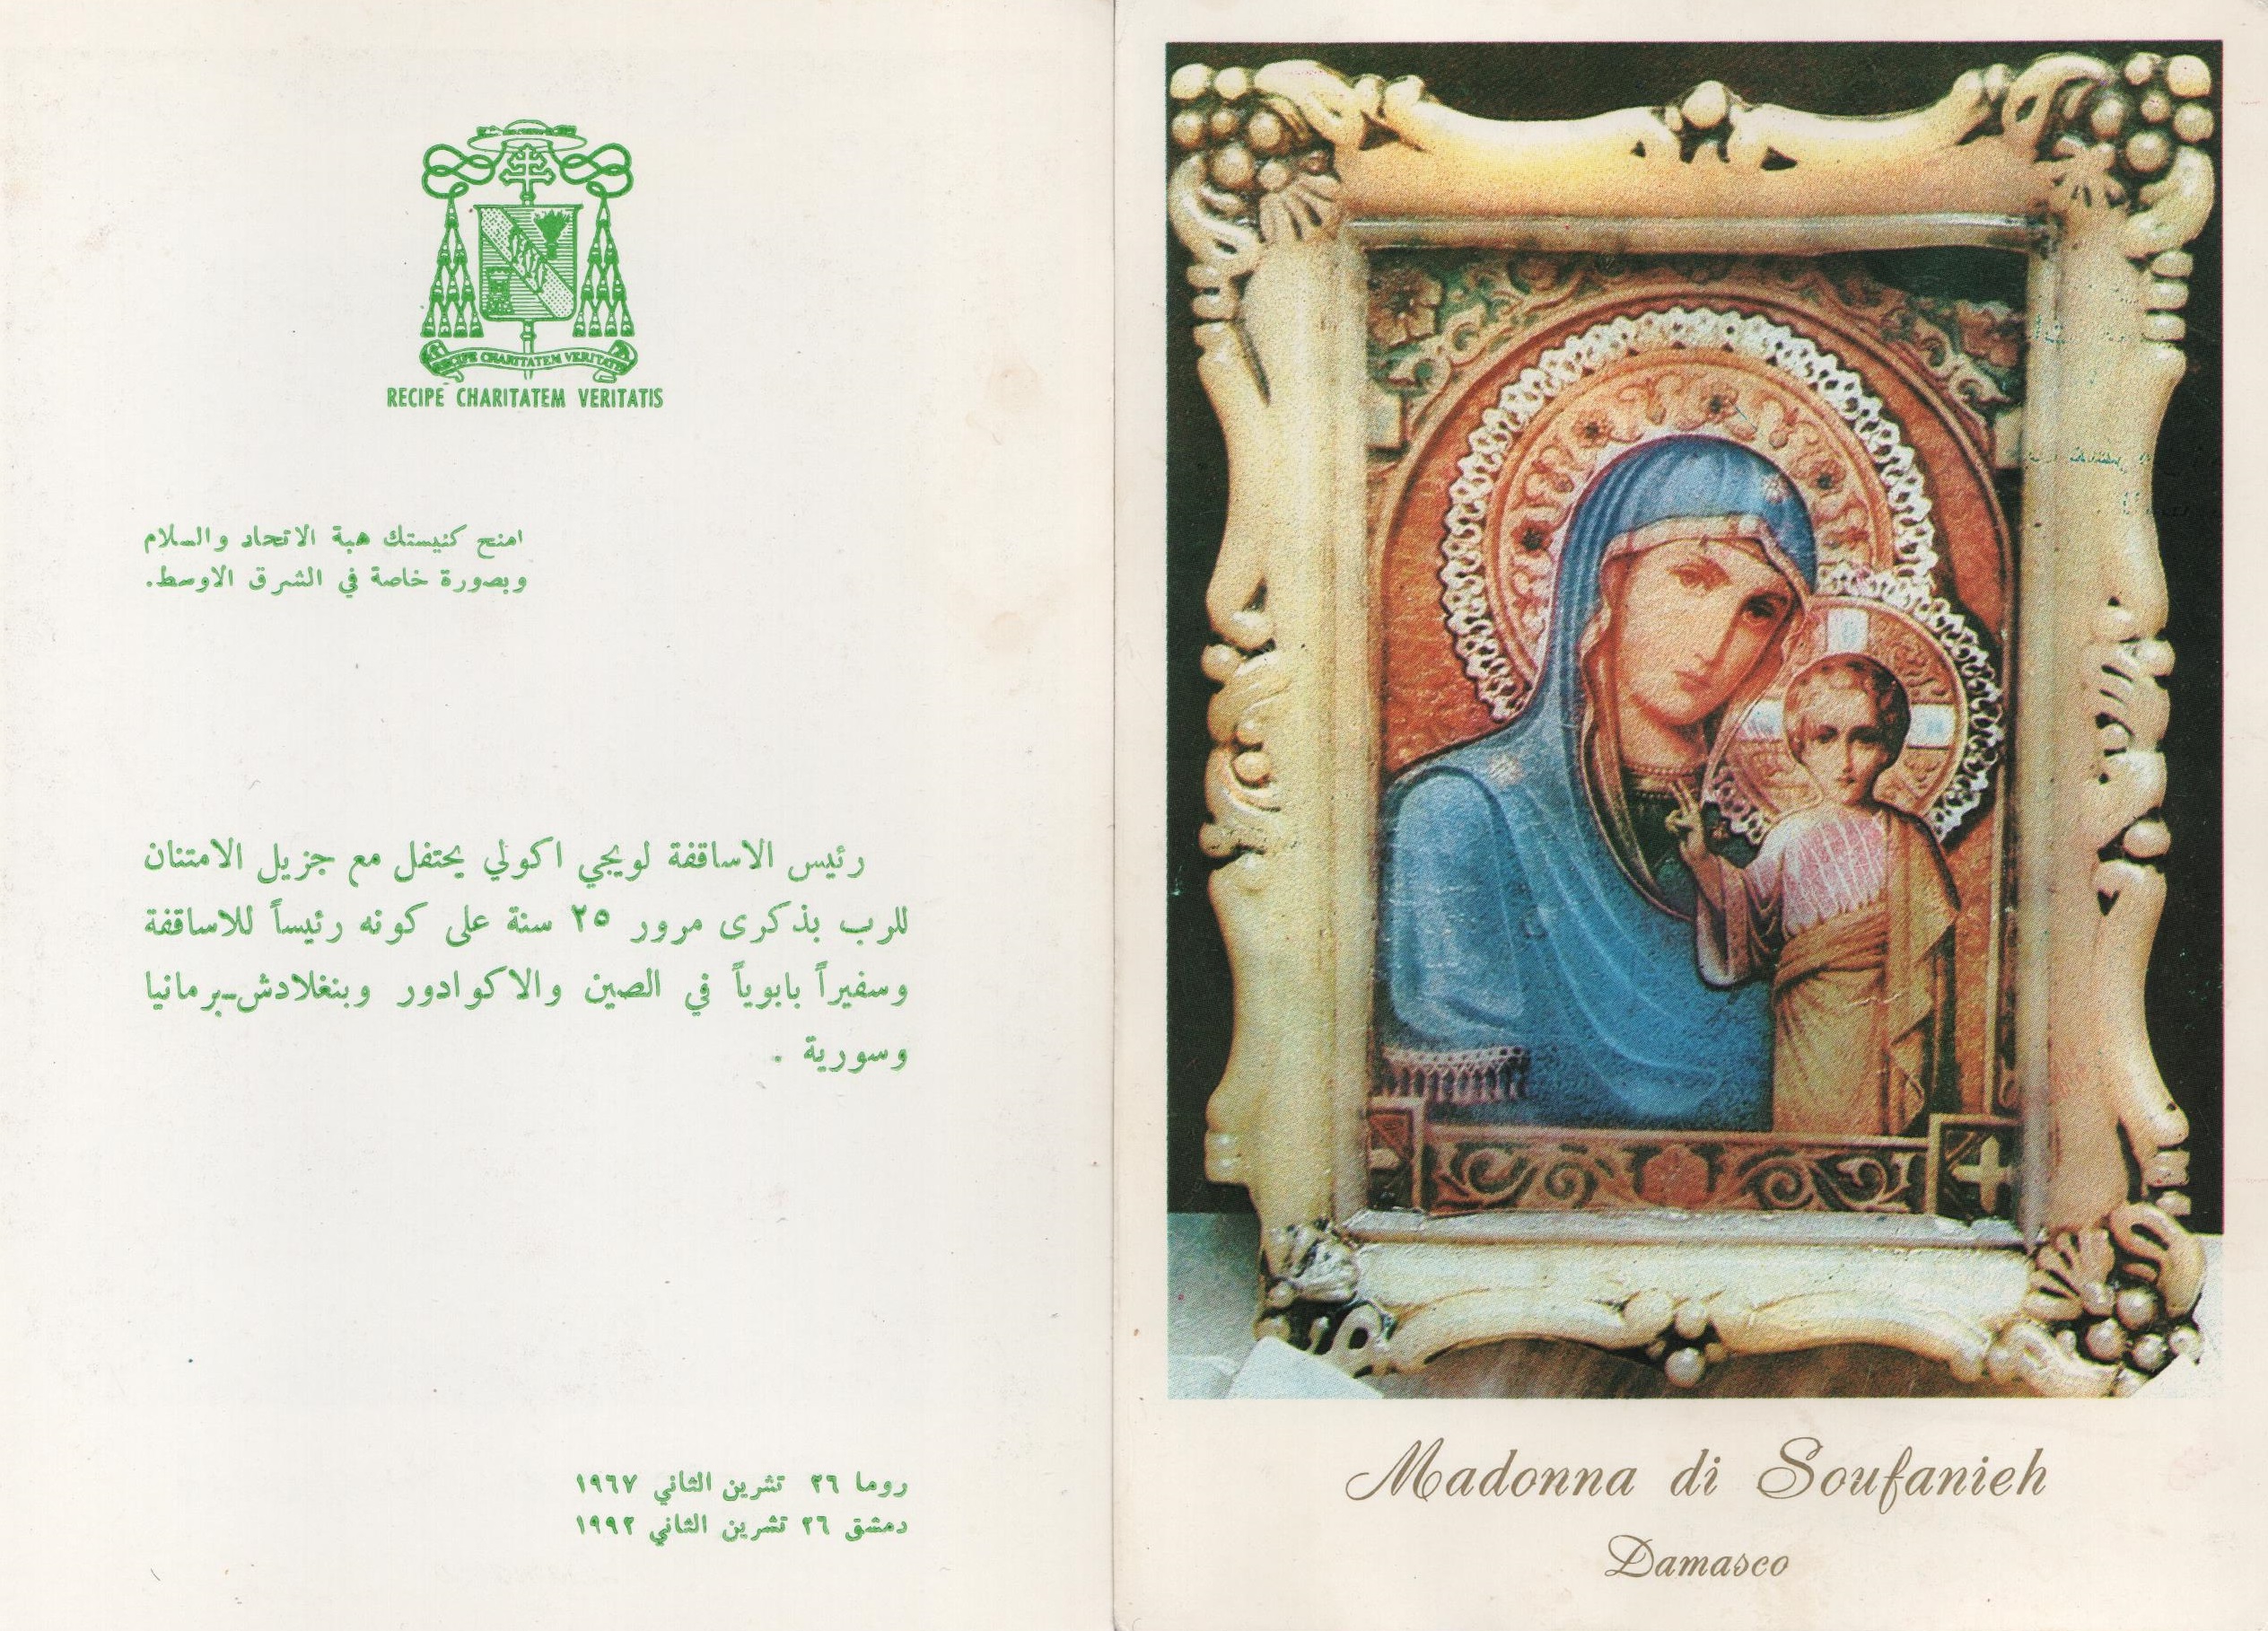 RECIPE CHARITATEM VERITATIS
RECIPE CHARITATEM VERITATIS
امنح كنيستك هبة الاتحاد والسلام
وبصورة خاصة في الشرق الاوسط.
رئيس الاساقفة لويجي اكولي يحتفل مع جزيل الامتنان
للرب بذكرى مرور ٢٥ سنة على كونه رئيساً للاساقفة
وسفيراً بابوياً في الصين والاكوادور وبنغلادش-برمانيا
وسورية .
روما ٢٦ تشرين الثاني ١٩٦٧
دمشق ٢٦ تشرين الثاني ١٩٩٢
Madonna di Soufanieh
Damasco